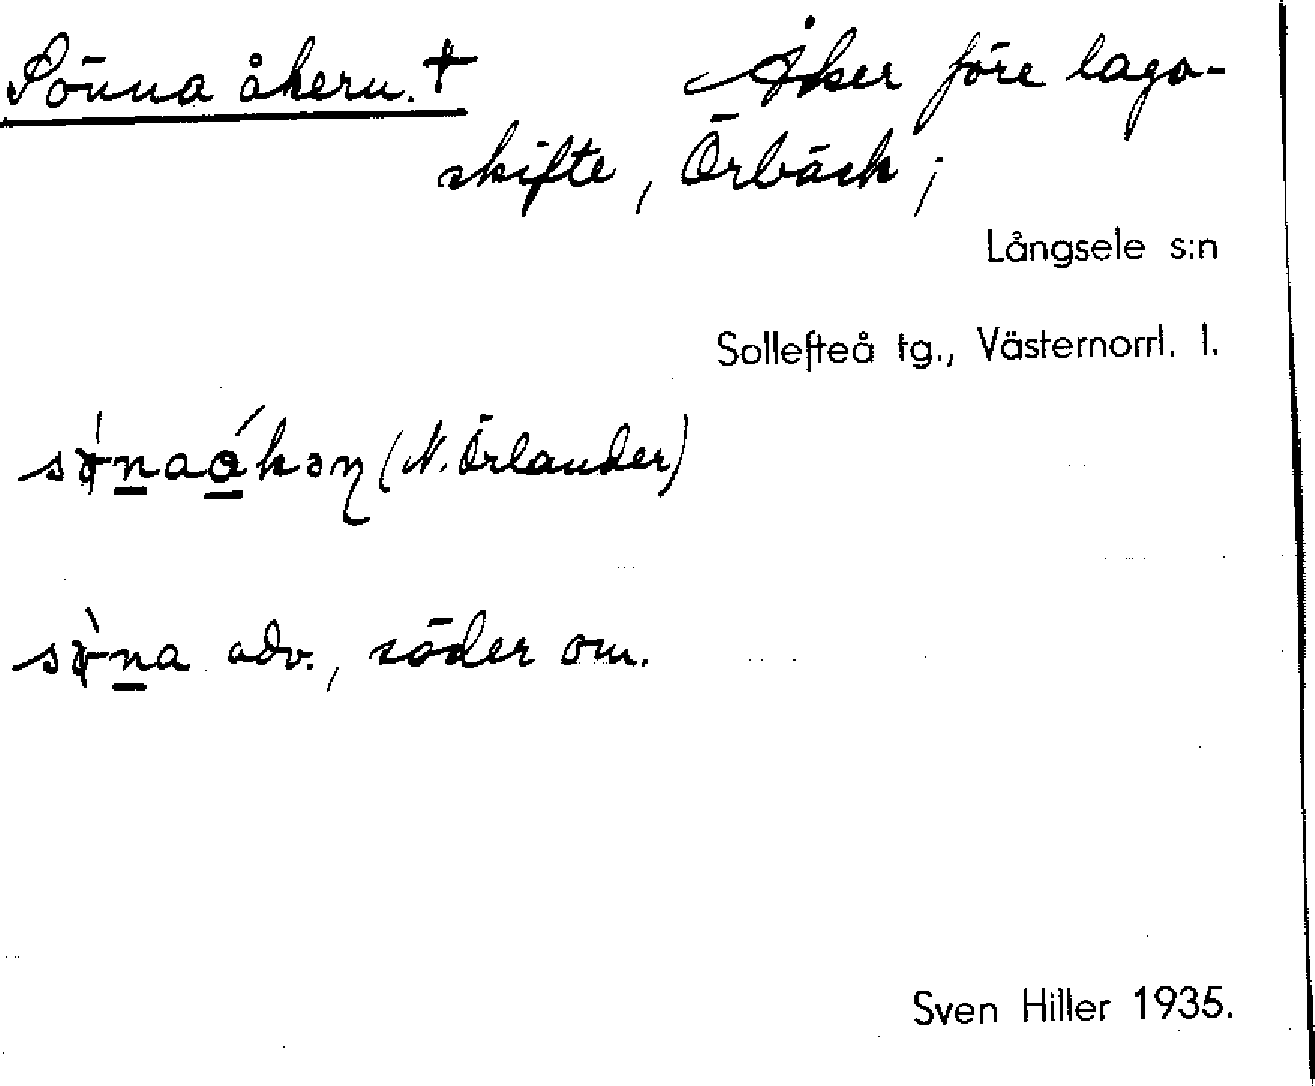 Sönna åkern. † Åker före laga-
skifte, Örbäck;
Långsele s:n
Sollefteå tg., Västernorrl. l.
(N. Örlander)
adv., söder om.
Sven Hiller 1935.